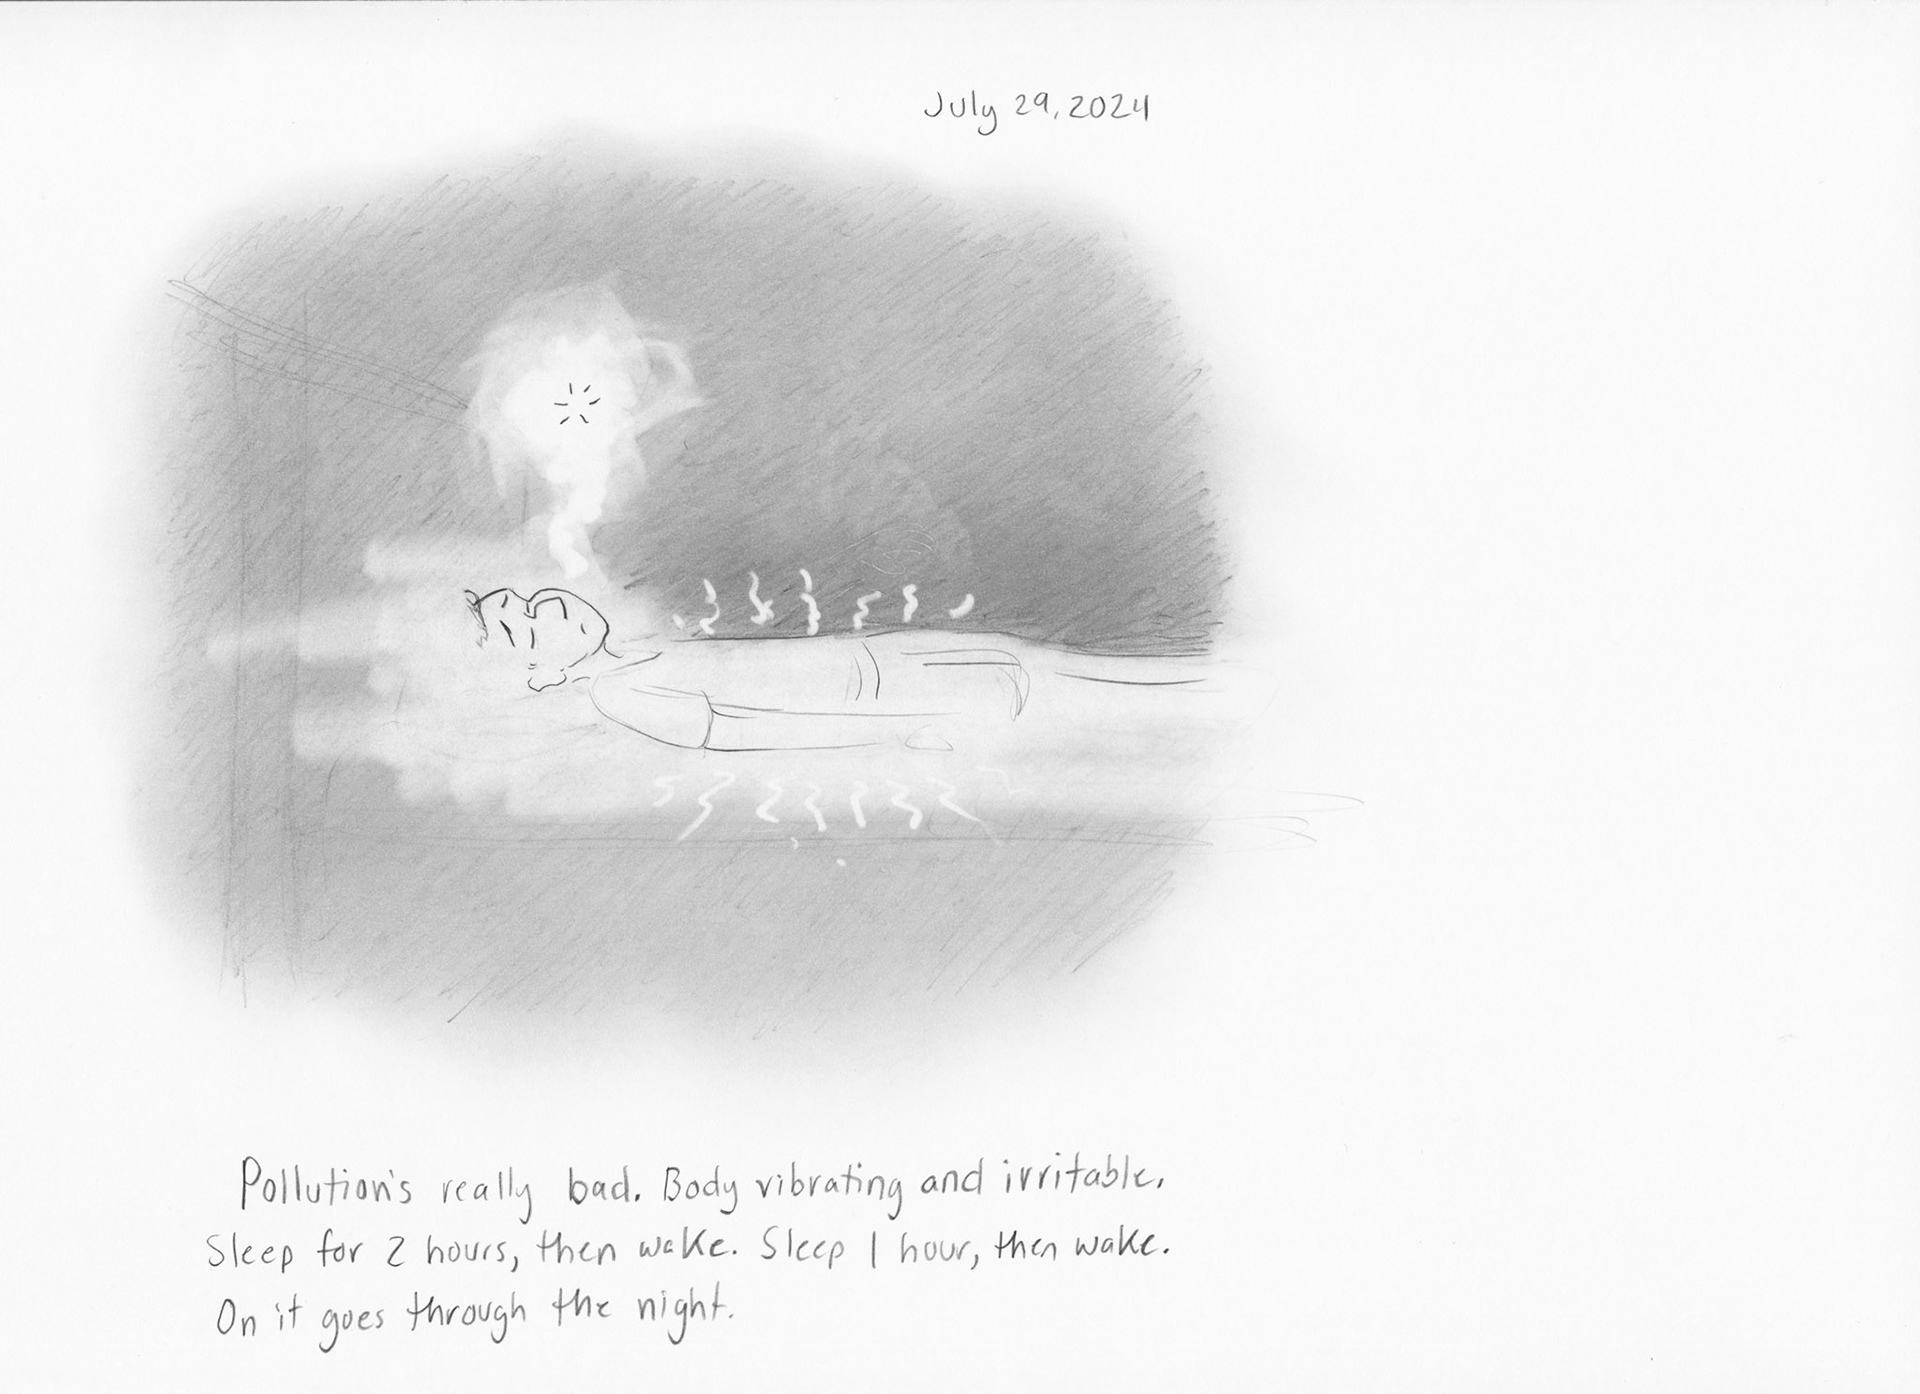 July 29, 2024
Pollution's really bad. Body vibrating and irritable.
Sleep for 2 hours, then wake. Sleep 1 hour, then wake.
On it goes through the night.